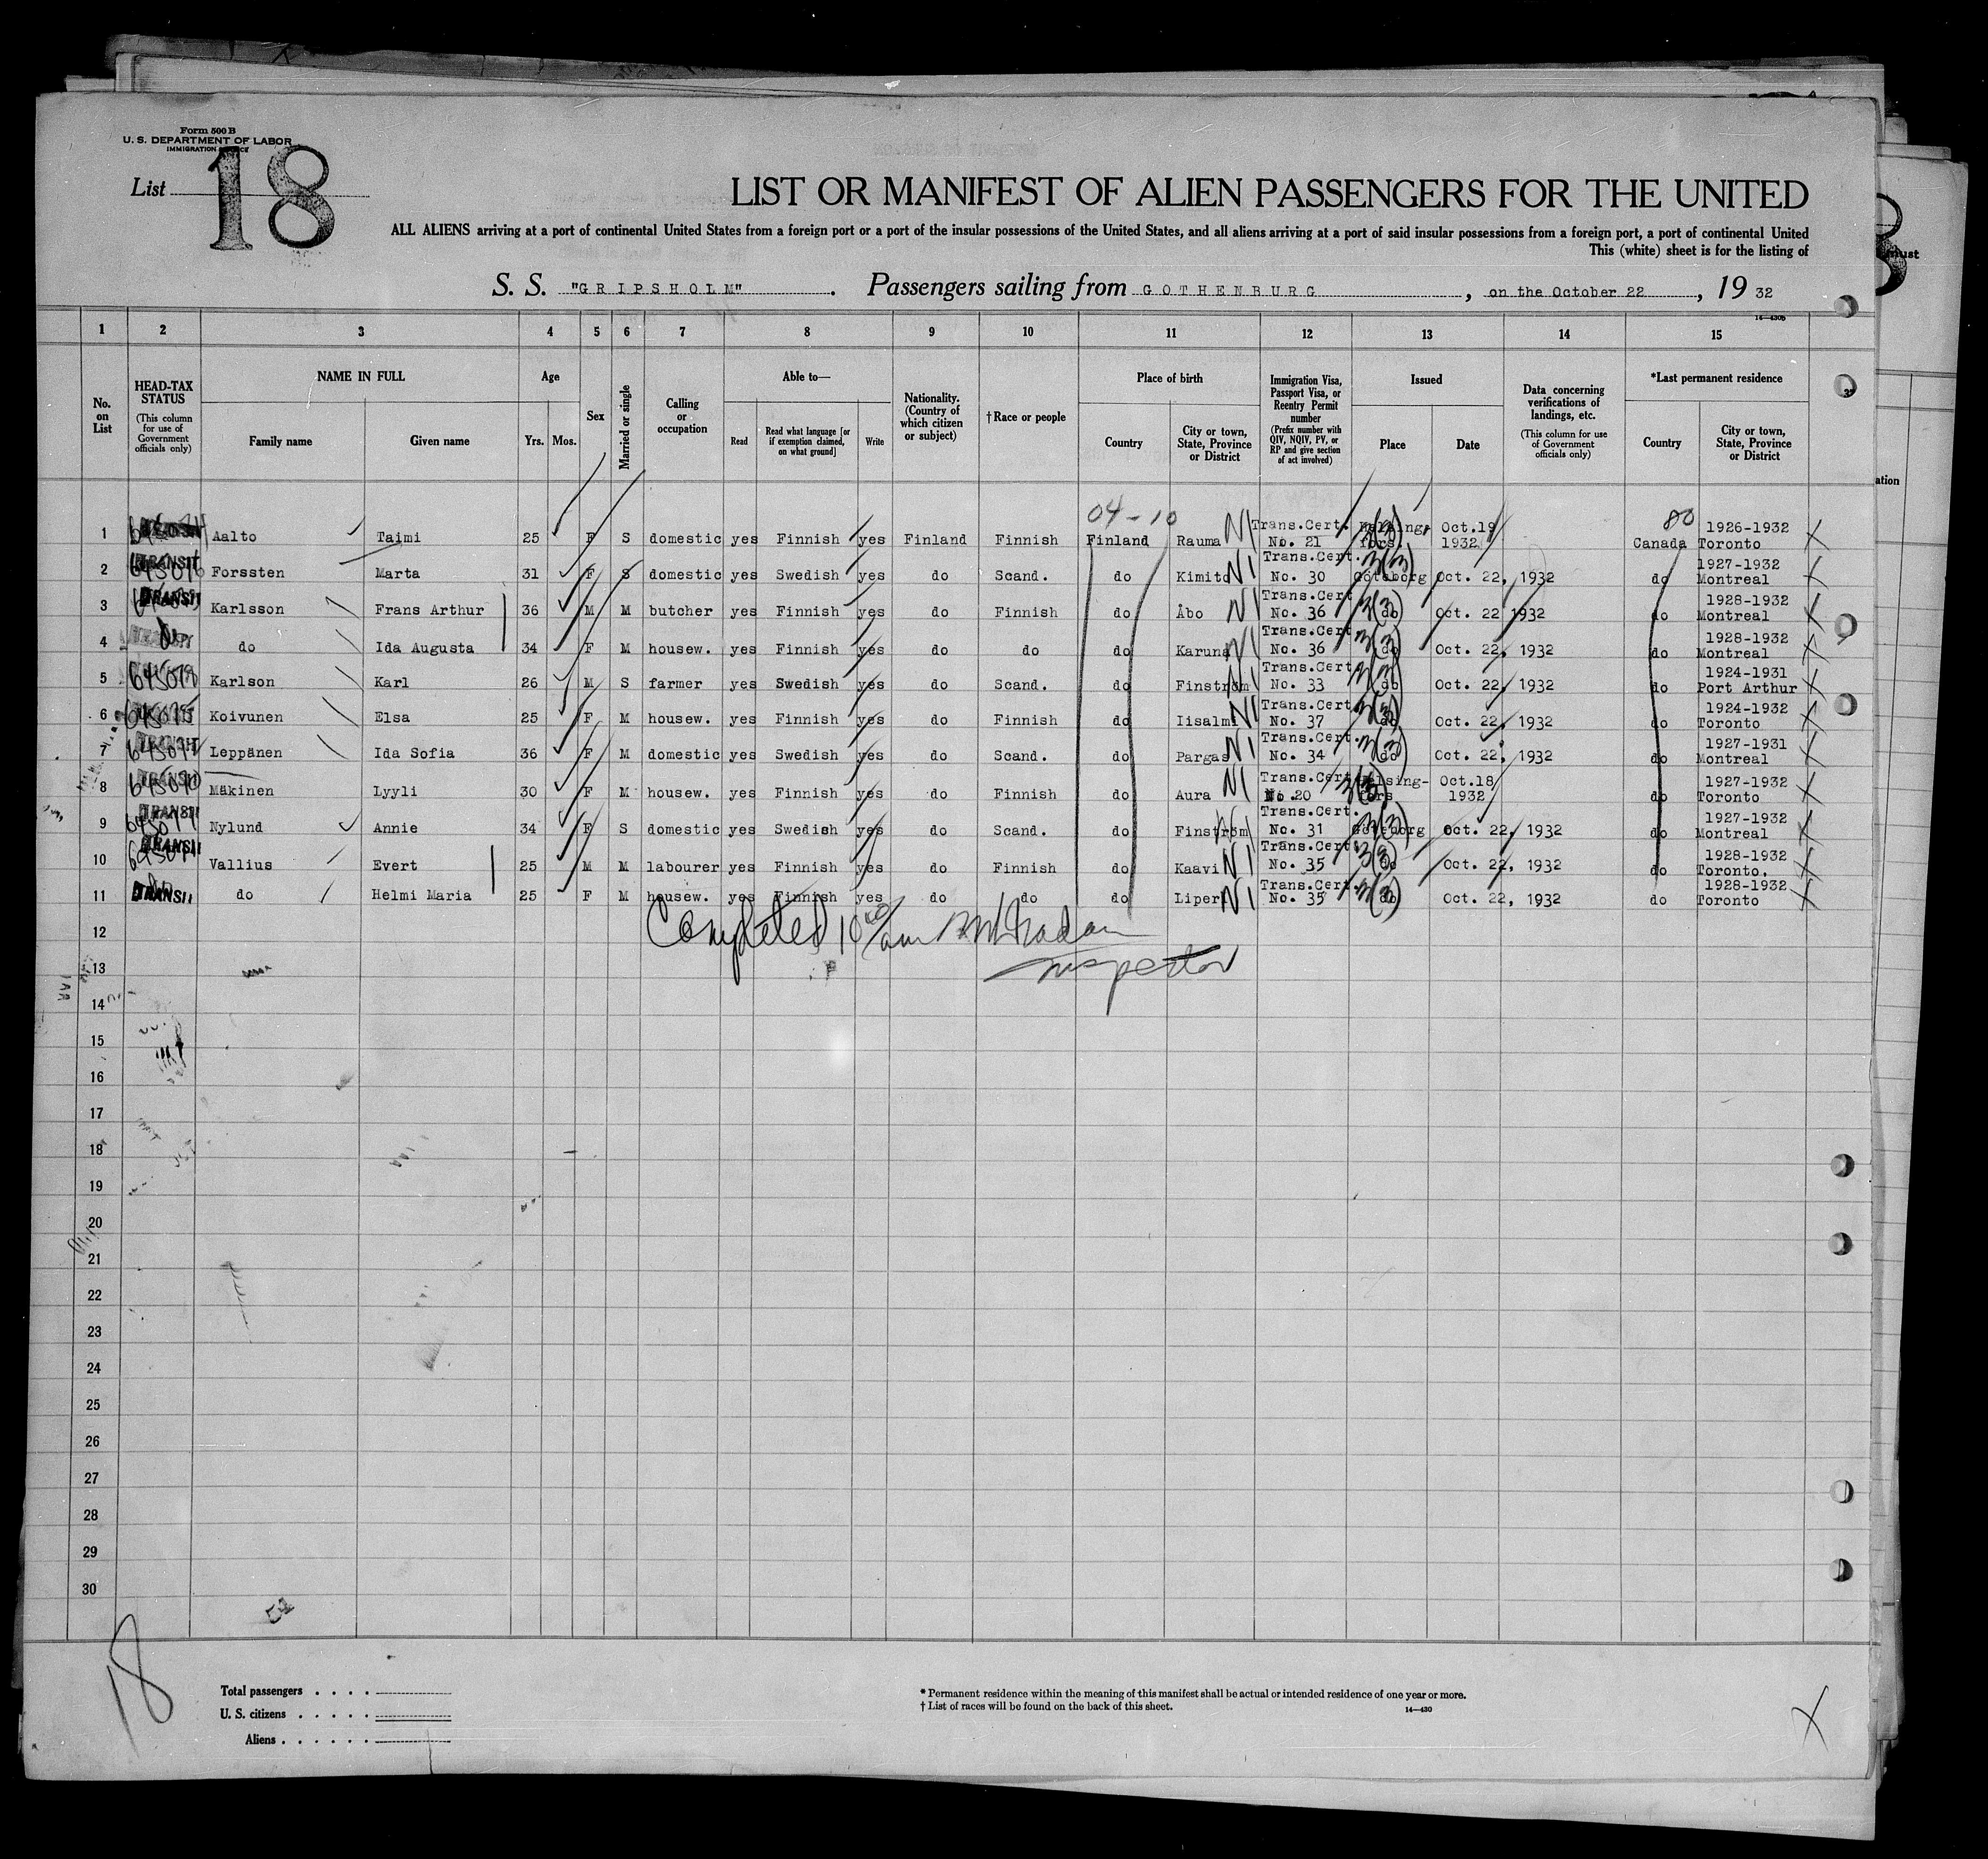 Form 500 B
U. S. DEPARTMENT OF LABOR
IMMIGRATION
List 18
LIST OR MANIFEST OF ALIEN PASSENGERS FOR THE UNITED
ALL ALIENS arriving at a port of continental United States from a foreign port or a port of the insular possessions of the United States, and all aliens arriving at a port of said insular possessions from a foreign port, a port of continental United
This (white) sheet is for the listing of
S. S. "GRIPSHOLM". Passengers sailing from GOTHENBURG, on the October 22, 19 32
1 2 3 4 5 6 7 8 9 10 11 12 13 14 15
No. on List
HEAD-TAX STATUS (This column for use of Government officials only)
NAME IN FULL Family name Given name
Age Yrs. Mos.
Sex
Married or single
Calling or occupation
Able to— Read Read what language [or if exemption claimed, on what ground] Write
Nationality. (Country of which citizen or subject)
†Race or people
Place of birth Country City or town, State, Province or District
Immigration Visa, Passport Visa, or Reentry Permit number (Prefix number with QIV, NQIV, PV, or RP and give section of act involved)
Issued Place Date
Data concerning verifications of landings, etc. (This column for use of Government officials only)
*Last permanent residence Country City or town, State, Province or District
04-10 80
1 Aalto Taimi 25 F S domestic yes Finnish yes Finland Finnish Finland Rauma NI Trans.Cert. No. 21 Helsingfors. 3(3) Oct.19 1932 Canada 1926-1932 Toronto
2 TRANSIT Forssten Marta 31 F S domestic yes Swedish yes do Scand. do Kimito NI Trans.Cert. No. 30 Göteborg 3(3) Oct. 22, 1932 do 1927-1932 Montreal
3 TRANSIT Karlsson Frans Arthur 36 M M butcher yes Finnish yes do Finnish do Åbo NI Trans.Cert. No. 36 do 3(3) Oct. 22 1932 do 1928-1932 Montreal
4 do Ida Augusta 34 F M housew. yes Finnish yes do do do Karuna NI Trans.Cert. No. 36 do 3(3) Oct. 22, 1932 do 1928-1932 Montreal
5 Karlson Karl 26 M S farmer yes Swedish yes do Scand. do Finström NI Trans.Cert. No. 33 do 3(3) Oct. 22, 1932 do 1924-1931 Port Arthur
6 Koivunen Elsa 25 F M housew. yes Finnish yes do Finnish do Iisalmi NI Trans.Cert. No. 37 do 3(3) Oct. 22, 1932 do 1924-1932 Toronto
7 Leppänen Ida Sofia 36 F M domestic yes Swedish yes do Scand. do Pargas NI Trans.Cert. No. 34 do 3(3) Oct. 22, 1932 do 1927-1931 Montreal
8 Mäkinen Lyyli 30 F M housew. yes Finnish yes do Finnish do Aura NI Trans.Cert. No.20 Helsing-fors 3(3) Oct.18 1932 do 1927-1932 Toronto
9 TRANSIT Nylund Annie 34 F S domestic yes Swedish yes do Scand. do Finström NI Trans.Cert. No. 31 Göteborg 3(3) Oct. 22, 1932 do 1927-1932 Montreal
10 TRANSIT Vallius Evert 25 M M labourer yes Finnish yes do Finnish do Kaavi NI Trans.Cert. No. 35 do 3(3) Oct. 22, 1932 do 1928-1932 Toronto.
11 TRANSIT do Helmi Maria 25 F M housew. yes Finnish yes do do do Liperi NI Trans.Cert. No. 35 do 3(3) Oct. 22, 1932 do 1928-1932 Toronto
Completed
Inspector
12
13
14
15
16
17
18
19
20
21
22
23
24
25
26
27
28
29
30
18
Total passengers
U. S. citizens
Aliens
* Permanent residence within the meaning of this manifest shall be actual or intended residence of one year or more.
† List of races will be found on the back of this sheet.
14—430